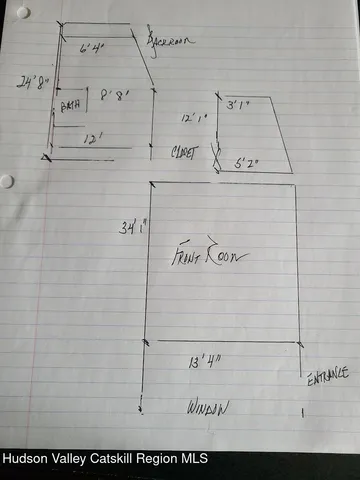 6'4"
BACKROOM
24'8"
8'8"
BATH
12'
3'1"
12'1"
CLOSET
5'2"
34'1"
FRONT ROOM
13'4"
ENTRANCE
WINDOW
Hudson Valley Catskill Region MLS